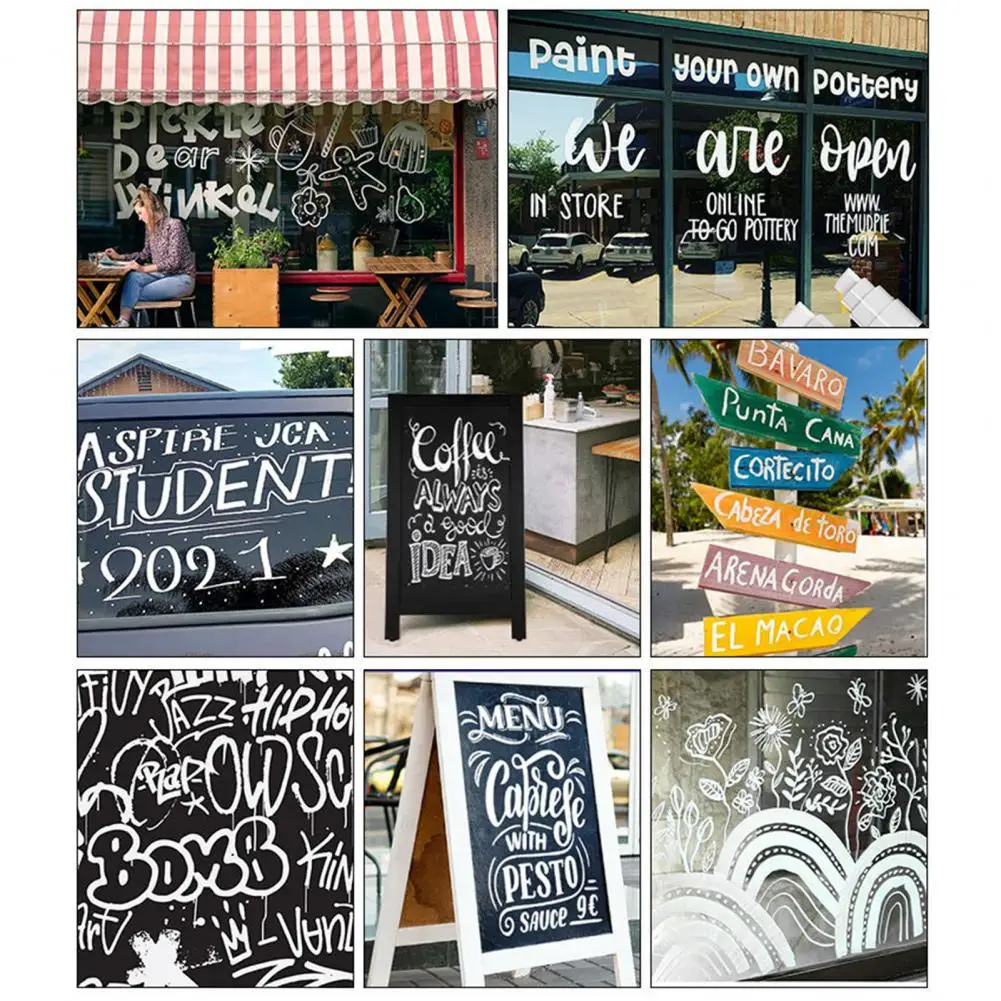 Pickle
Dear
Winkel
paint your own pottery
we are open
IN STORE
ONLINE
TO-GO POTTERY
WWW.
THEMUDPIE
.COM
ASPIRE JCA
STUDENT!
2021
Coffee
is
ALWAYS
a good
IDEA
BAVARO
PUNTA CANA
CORTECITO
CABEZA de TORO
ARENA GORDA
EL MACAO
JAZZ HIP HO
OLD SC
BOMB
KIN
MENU
Caprese
WITH
PESTO
SAUCE 9€